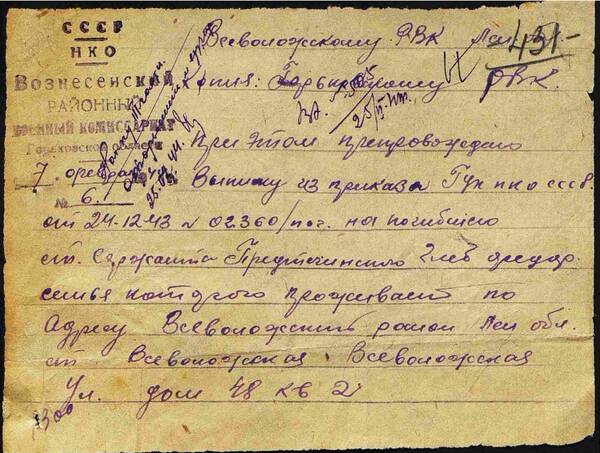 СССР
НКО
Вознесенский
РАЙОННЫЙ
ВОЕННЫЙ КОМИССАРИАТ
Горьковской области
7 февраля
№ 6
Всеволожскому РВК Лен
-431-
Копия: Горьковскому РВК.
При этом препровождаю
Выписку из приказа Гук нко ссср.
от 24-12-43 № 02360/пог. на погибшего
ст. Сержанта Предтечинского Глеб федор.
семья которого проживает по
Адресу Всеволожский район Лен обл.
ст. Всеволожская, Всеволожская
Ул. дом 48 кв 2